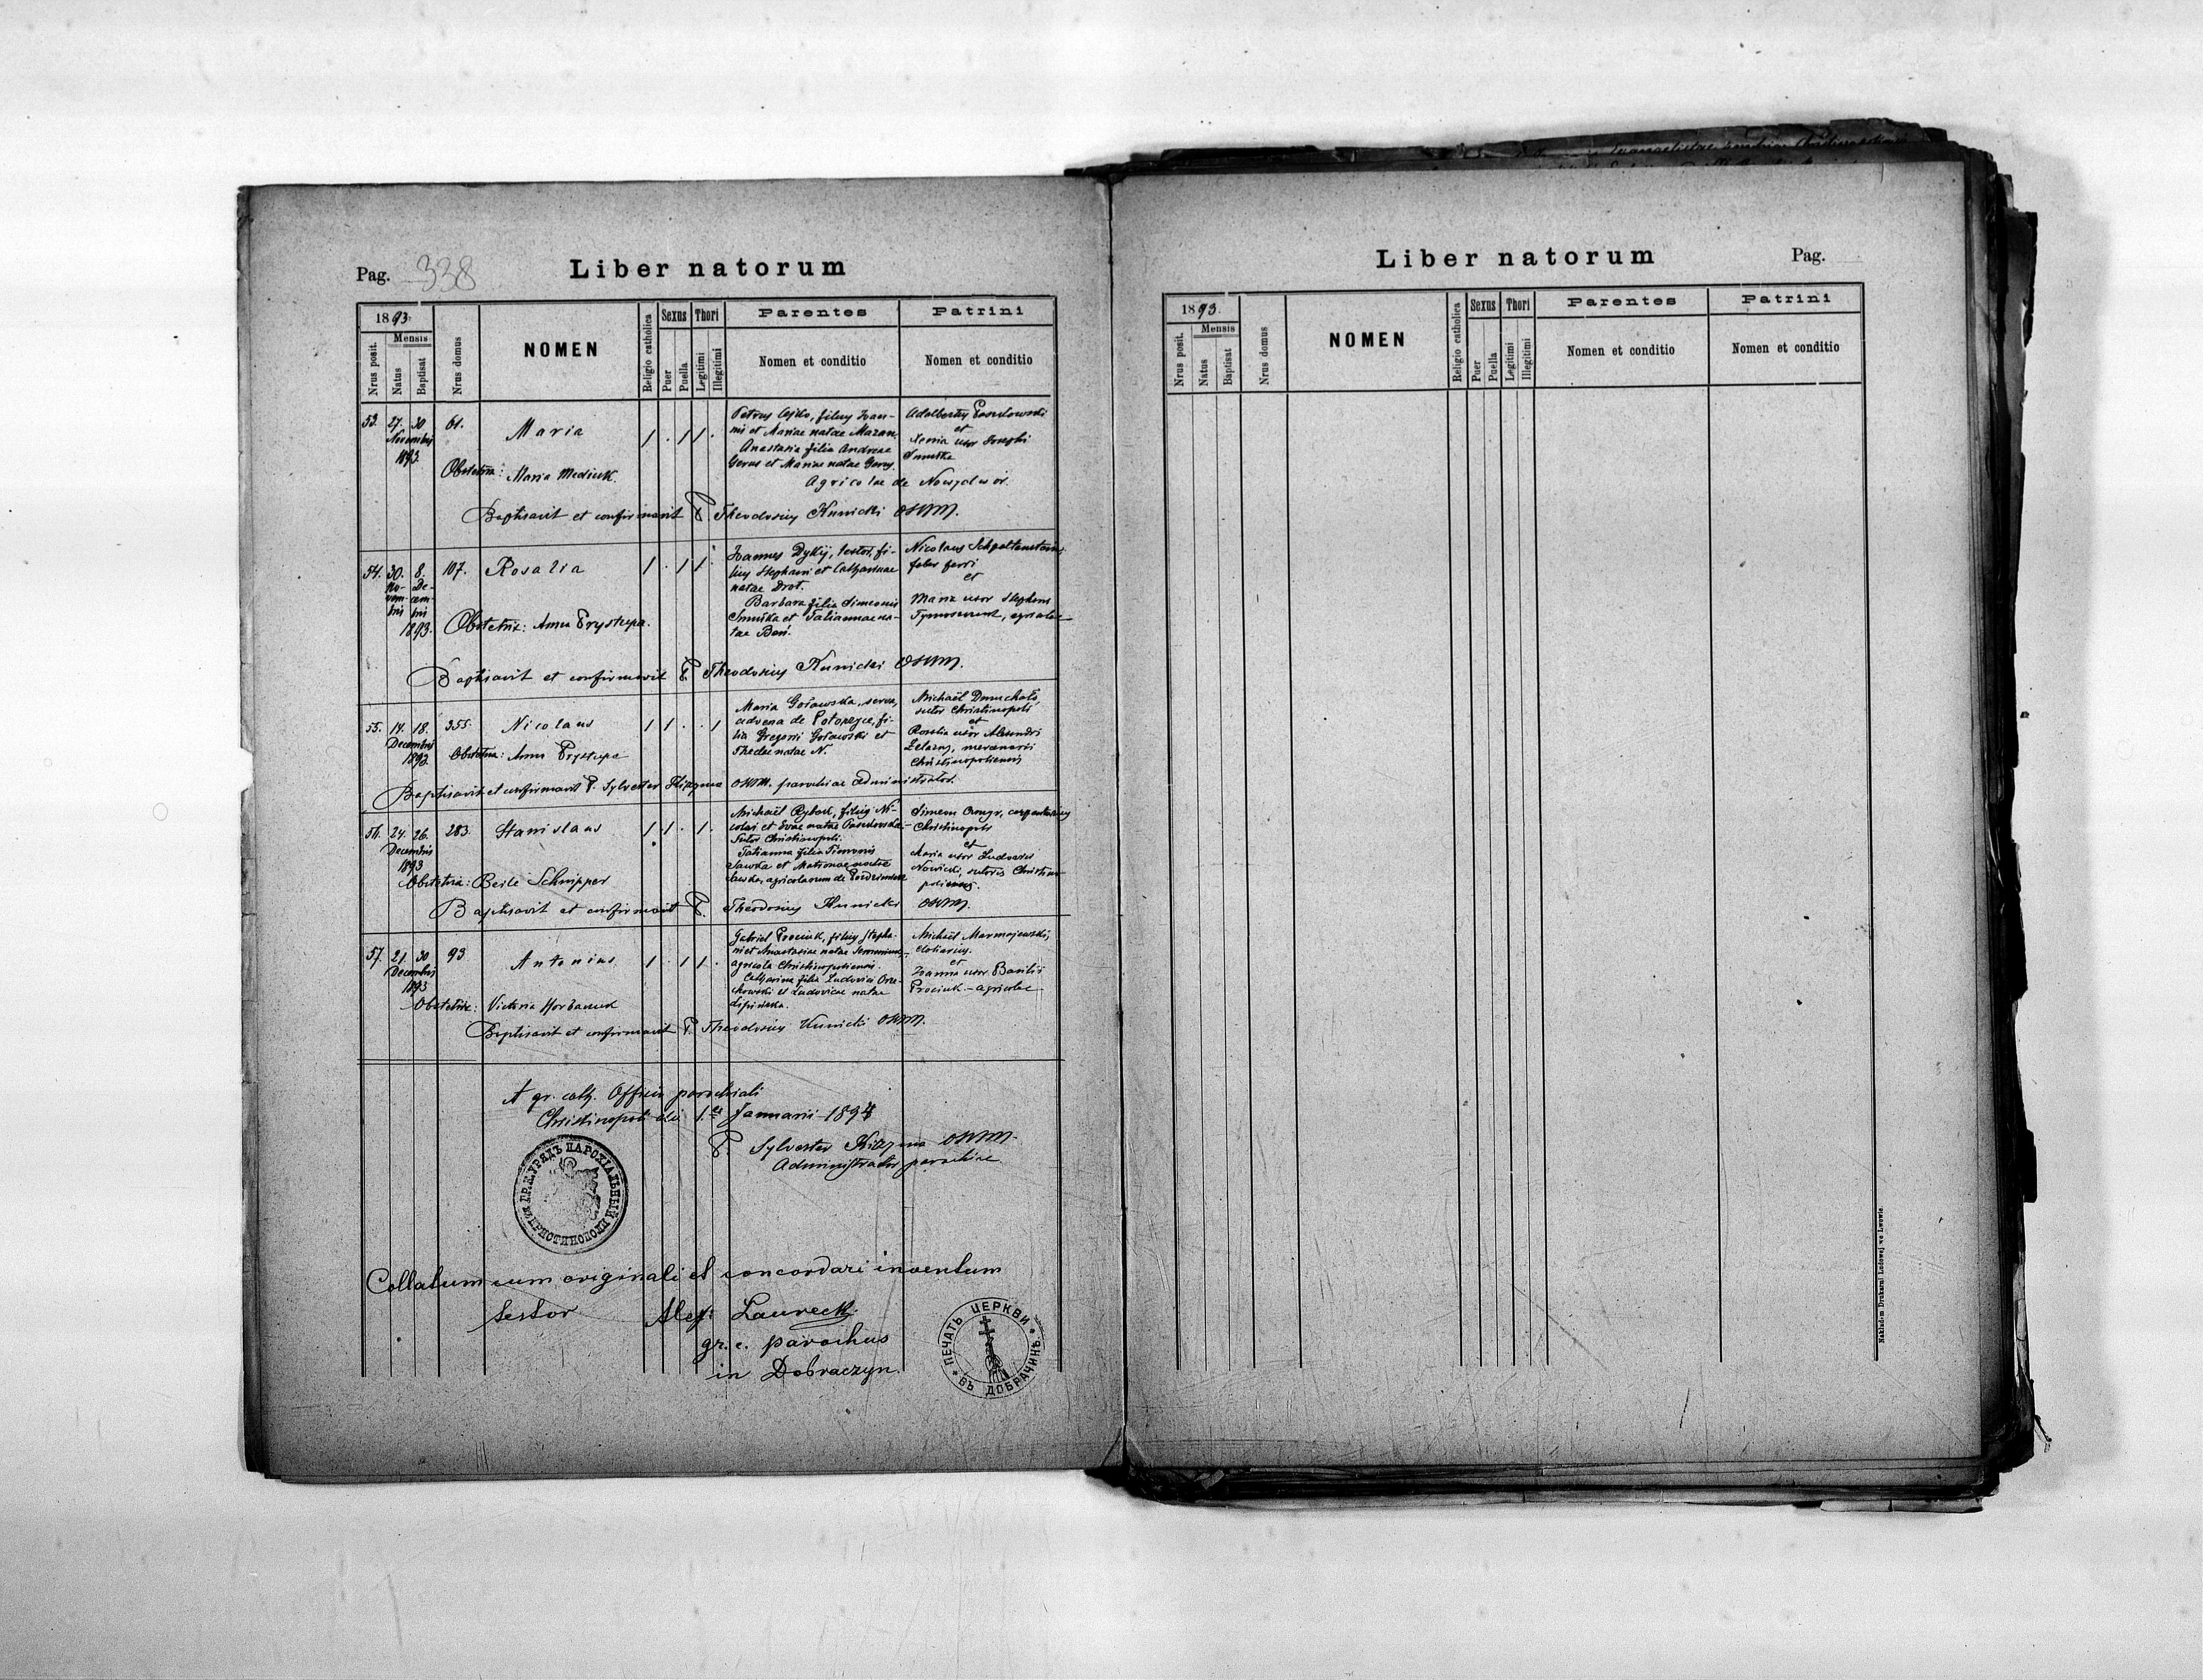 Pag. 338
Liber natorum
1893.
Nrus posit.
Mensis
Natus
Baptisat
Nrus domus
NOMEN
Religio catholica
Sexus
Puer
Puella
Thori
Legitimi
Illegitimi
Parentes
Nomen et conditio
Patrini
Nomen et conditio
53. 27. 30 61. Maria 1 . 1 1 .
Novembris
1893.
Obstetrix: Maria Medicuk.
Petrus, filius Joan-
nis et Mariae natae Mazan,
Anastasia filia Andreae
Gerus et Mariae natae Gerus.
Adalbertus
et
Xenia uxor Josephi
Smutka
Agricolae de Nowydwór.
Baptisavit et confirmavit P. Theodosius Kunicki OSBM.
54. 30. 8. 107. Rosalia 1 . 1 1 .
No- De-
vem- cem-
bris bris
1893.
Obstetrix: Anna Prystupa.
Joannes Dykij, textor, fi-
lius Stephani et Catharinae
natae Drot.
Barbara filia Simeonis
et Tatiannae na-
tae
Nicolaus
faber ferri
et
Maria uxor Stephani
agricolae
Baptisavit et confirmavit P. Theodosius Kunicki OSBM.
55. 14. 18. 355. Nicolaus 1 1 . . 1
Decembris
1893.
Obstetrix: Anna Prystupa
Maria Gorawska, serva,
advena de fi-
lia Gregorii Gorawski et
Theclae natae N.
Michaël
sutor Christinopoli
et
Rosalia uxor Alexandri
Żelazny, mercenarii
Christinopoliensis
Baptisavit et confirmavit P. Sylvester Kizyma OSBM. parochiae administrator.
56. 24. 26. 283. Stanislaus 1 1 . 1 .
Decembris
1893
Obstetrix: Beile Schnipper
Michaël Rybak, filius Ni-
colai et Evae natae
Sutor Christinopoli.
Tatianna filia Timonis
Sawka et Matronae natae
Sawka, agricolarum de
Simeon
Christinopoli
et
Maria uxor Ludovici
Nowicki, sutoris Christino-
poliensis.
Baptisavit et confirmavit P. Theodosius Kunicki OSBM.
57. 21. 30 93 Antonius 1 . 1 1 .
Decembris
1893
Obstetrix: Victoria Horbaczuk
Gabriel Prociuk, filius Stepha-
ni et Anastasiae natae
agricola Christinopoliensis.
Catharina filia Ludovici Orze-
chowski et Ludovicae natae
Lipińska.
Michaël Marmajewski,
doliarius.
et
Joanna uxor Basilii
Prociuk - agricolae
Baptisavit et confirmavit P. Theodosius Kunicki OSBM.
A gr. cath. Officio parochiali
Christinopoli die 1. Januarii 1894
P. Sylvester Kizyma OSBM.
Administrator parochiae
ГР.К.УРЯДЪ ПАРОХІАЛЬНЫЙ ХРИСТИНОПОЛИ
Collatum cum originali et concordari inventum
testor Alex: Laureck
gr. c. parochus
in Dobraczyn.
ПЕЧАТЬ ЦЕРКВИ ВЪ ДОБРАЧИНѢ
Liber natorum
Pag.
1893.
Nrus posit.
Mensis
Natus
Baptisat
Nrus domus
NOMEN
Religio catholica
Sexus
Puer
Puella
Thori
Legitimi
Illegitimi
Parentes
Nomen et conditio
Patrini
Nomen et conditio
Nakładem Drukarni Ludowej we Lwowie.